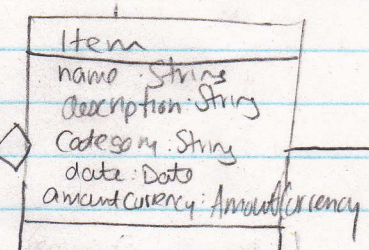 Item
name : String
description : String
Category : String
date : Date
amountCurrency : AmountCurrency